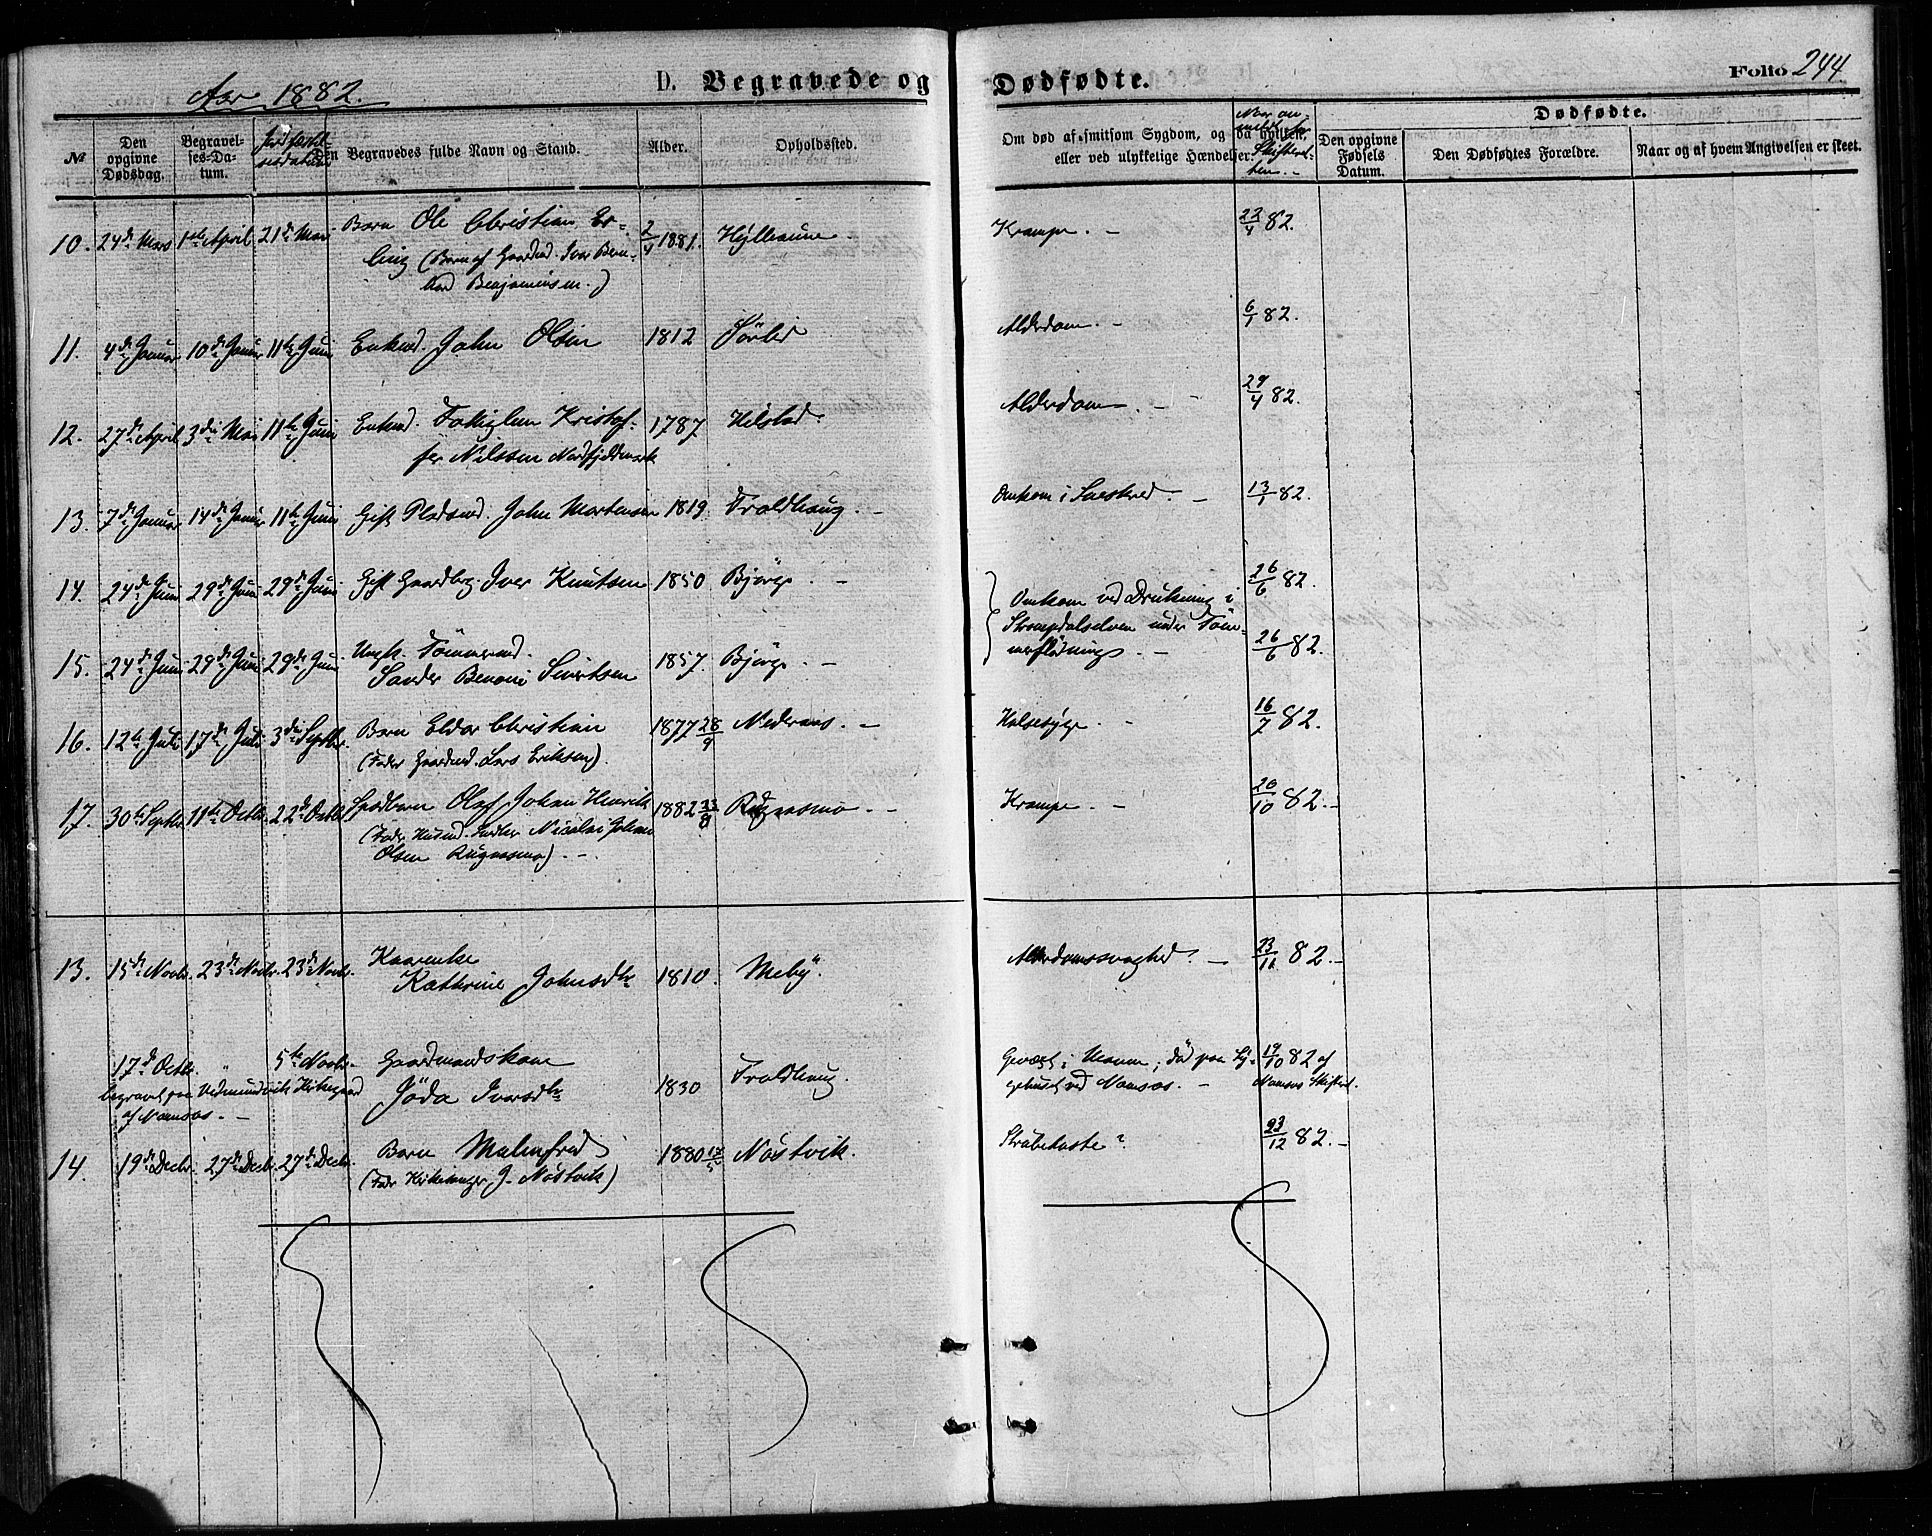 Aar 1882.
D. Begravede og Dødfødte.
Folio 244
№
Den opgivne Dødsdag.
Begravelses-Datum.
Jordfæstelsesdatum
Den Begravedes fulde Navn og Stand.
Alder.
Opholdssted.
Om død af smitsom Sygdom, og paa hvilken,
eller ved ulykkelige Hændelser.
Naar anmeldt for Skifteretten.-
Dødfødte.
Den opgivne Fødsels Datum.
Den Dødfødtes Forældre.
Naar og af hvem Angivelsen er skeet.
10. 24de Mars 1ste April 21de Mai Barn Ole Christian Er- 2/4 1881. Hylleaune - Krampe. - 22/4 82.
ling (Barn af Gaardmd. Iver Bern-
hard Benjaminsen.)
11. 4de Januar 10de Januar 11te Juni Enkmd. John Olsen 1812 Sørli Alderdom. - 6/1 82.
12. 27de April 3die Mai 11te Juni Enkmd. Kristof- 1787 Hilstad. Alderdom. - 29/4 82.
fer Nilssen Nordfjeldmark
13. 7de Januar 14de Januar 11te Juni Gift Pladsmd. John Mortensen 1819. Troldhaug. - Omkom i Sneskred. - 13/1 82.
14. 24de Juni 29de Juni 29de Juni Gift Gaardbrg. Iver Knutsen 1850 Bjørge. - 26/6 82.
Omkom ved Drukning i
Strompdalselven under Tøm-
merflødning. -
15. 24de Juni 29de Juni 29de Juni Ungk. Tømmermd. 1857. Bjørge. - 26/6 82.
Sander Benoni Sivertsen
16. 12te Juli 17de Juli 3die Septbr. Barn Eldor Christian 1877 28/9 Nederaas. - Halssyge. - 16/7 82.
(Fader Gaardmd. Lars Eriksen).
17. 30te Septbr. 11te Octbr. 22de Octbr. Spædbarn Olaf Johan Henrik 1882 23/8 - Krampe. - 20/10 82.-
(Fader Husmd. Nicolai Johan
Olsen Rugaasmo). -
13. 15de Novbr. 23de Novbr. 23de Novbr. Kaarenke 1810. Meby. Alderdomssvaghed. - 23/11 82.-
Kathrine Johnsdtr
17de Octbr. 5te Novbr. Gaardmandskone 1830 Troldhaug. 19/10 82 af
begravet paa Vedmundvik Kirkegaard Jøda Iversdtr gehuset ved Namsos. - Namsos Skifteret.
af Namsos. -
14. 19de Decbr. 27de Decbr. 27de Decbr. Barn Malmfred 1880 Nøstvik. Strubehoste? 23/12 82.-
(Fader Kirkesanger J. Nøstvik)